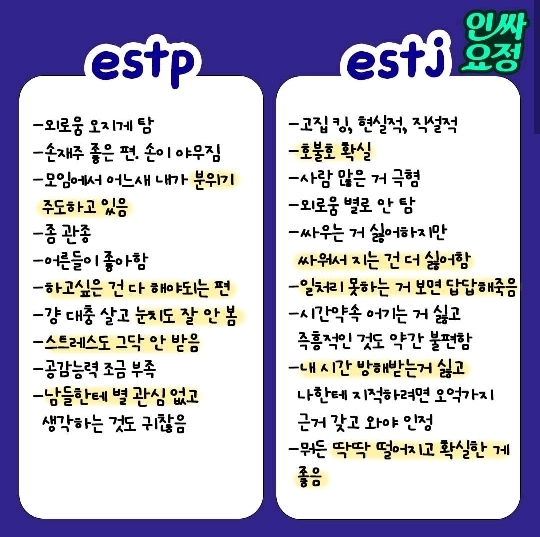 인싸
요정
estp
-외로움 오지게 탐
-손재주 좋은 편. 손이 야무짐
-모임에서 어느새 내가 분위기
주도하고 있음
-좀 관종
-어른들이 좋아함
-하고싶은 건 다 해야되는 편
-걍 대충 살고 눈치도 잘 안 봄
-스트레스도 그닥 안 받음
-공감능력 조금 부족
-남들한테 별 관심 없고
생각하는 것도 귀찮음
estj
-고집 킹, 현실적, 직설적
-호불호 확실
-사람 많은 거 극혐
-외로움 별로 안 탐
-싸우는 거 싫어하지만
싸워서 지는 건 더 싫어함
-일처리 못하는 거 보면 답답해죽음
-시간약속 어기는 거 싫고
즉흥적인 것도 약간 불편함
-내 시간 방해받는거 싫고
나한테 지적하려면 오억가지
근거 갖고 와야 인정
-뭐든 딱딱 떨어지고 확실한 게
좋음